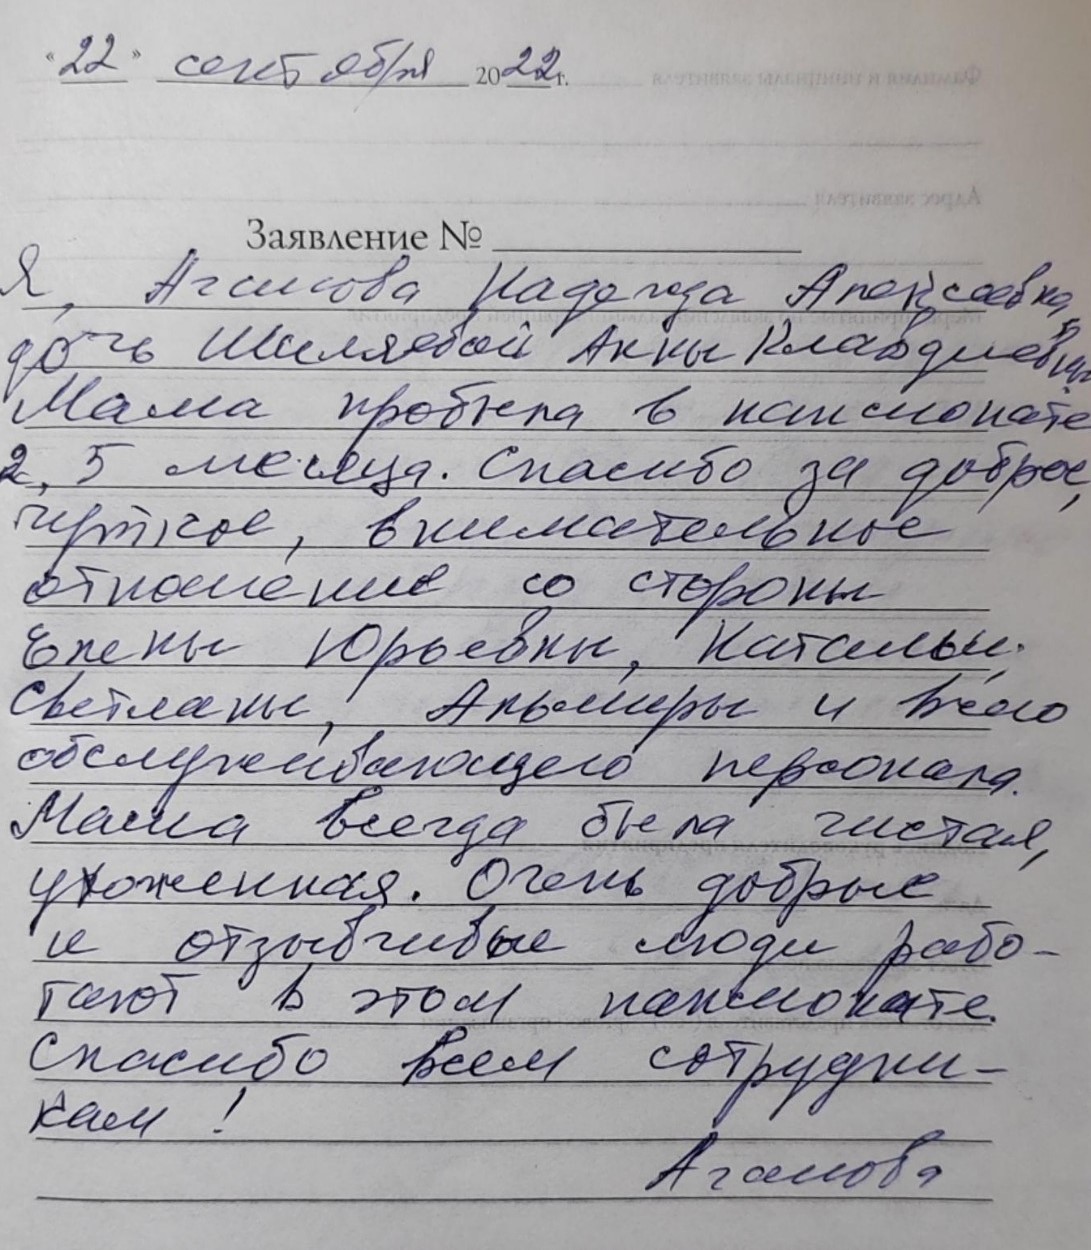 "22" сентября 2022 г.
Заявление №
Я, Агамова Надежда Алексеевна,
дочь Шиляевой Анны Клавдиевны.
Мама пробыла в пансионате
2,5 месяца. Спасибо за доброе,
чуткое, внимательное
отношение со стороны
Елены Юрьевны, Натальи,
Светланы, Альмиры и всего
обслуживающего персонала.
Мама всегда была чистая,
ухоженная. Очень добрые
и отзывчивые люди рабо-
тают в этом пансионате.
Спасибо всем сотрудни-
кам!
Агамова